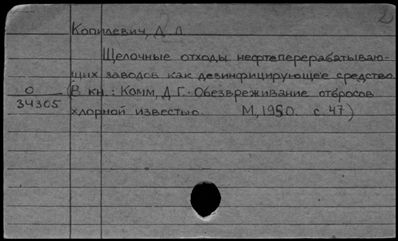 Копилевич, Д. Л.
Щелочные отходы нефтеперерабатываю-
щих заводов как дезинфицирующее средство.
О
34305
(В кн.: Комм, Д. Г. Обезвреживание отбросов
хлорной известью. М, 1950. с. 47)